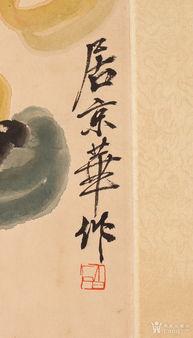 居京華作